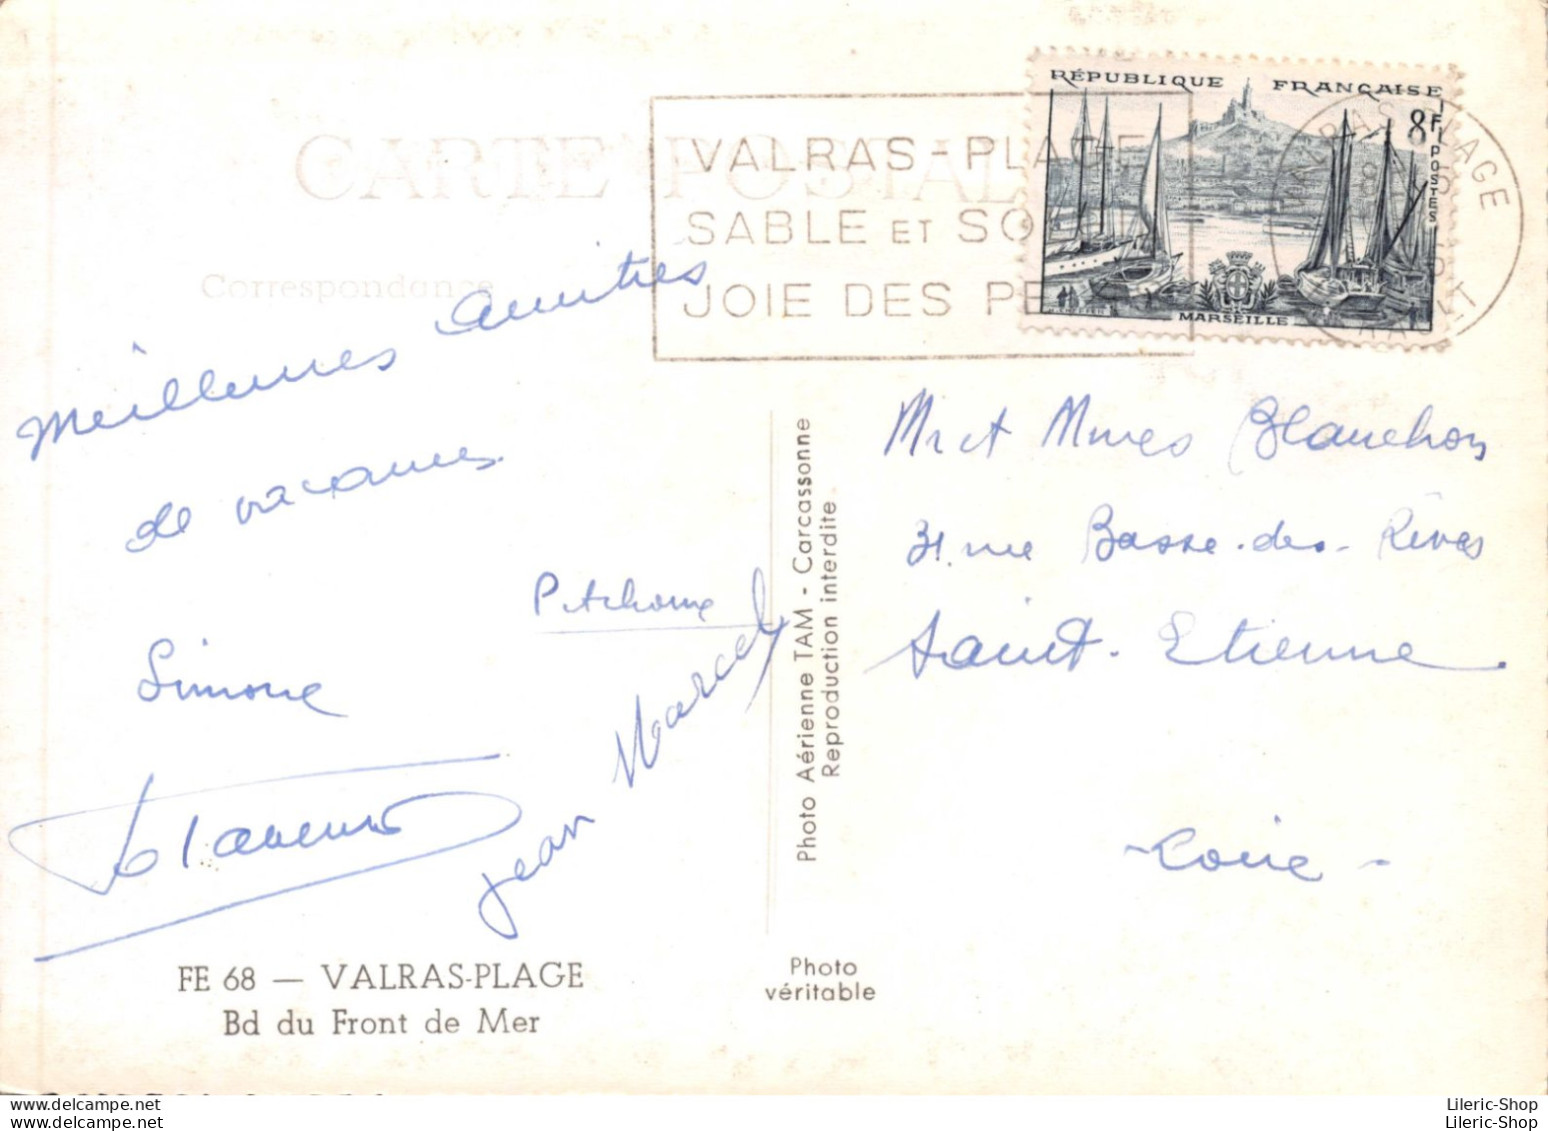 CARTE POSTALE
Correspondance
VALRAS-PLAGE
SABLE ET SO
JOIE DES PE
RÉPUBLIQUE FRANÇAISE
8F
POSTES
MARSEILLE
VALRAS-PLAGE
HERAULT
meilleures amitiés
de vacances
Simone
Jean Marcel
FE 68 — VALRAS-PLAGE
Bd du Front de Mer
Photo Aérienne TAM - Carcassonne
Reproduction interdite
Photo
véritable
Mr et Mmes Blanchon
31 rue Basse-des-Rives
Saint-Etienne
- Loire -
www.delcampe.net
www.delcampe.net
Lileric-Shop
Lileric-Shop